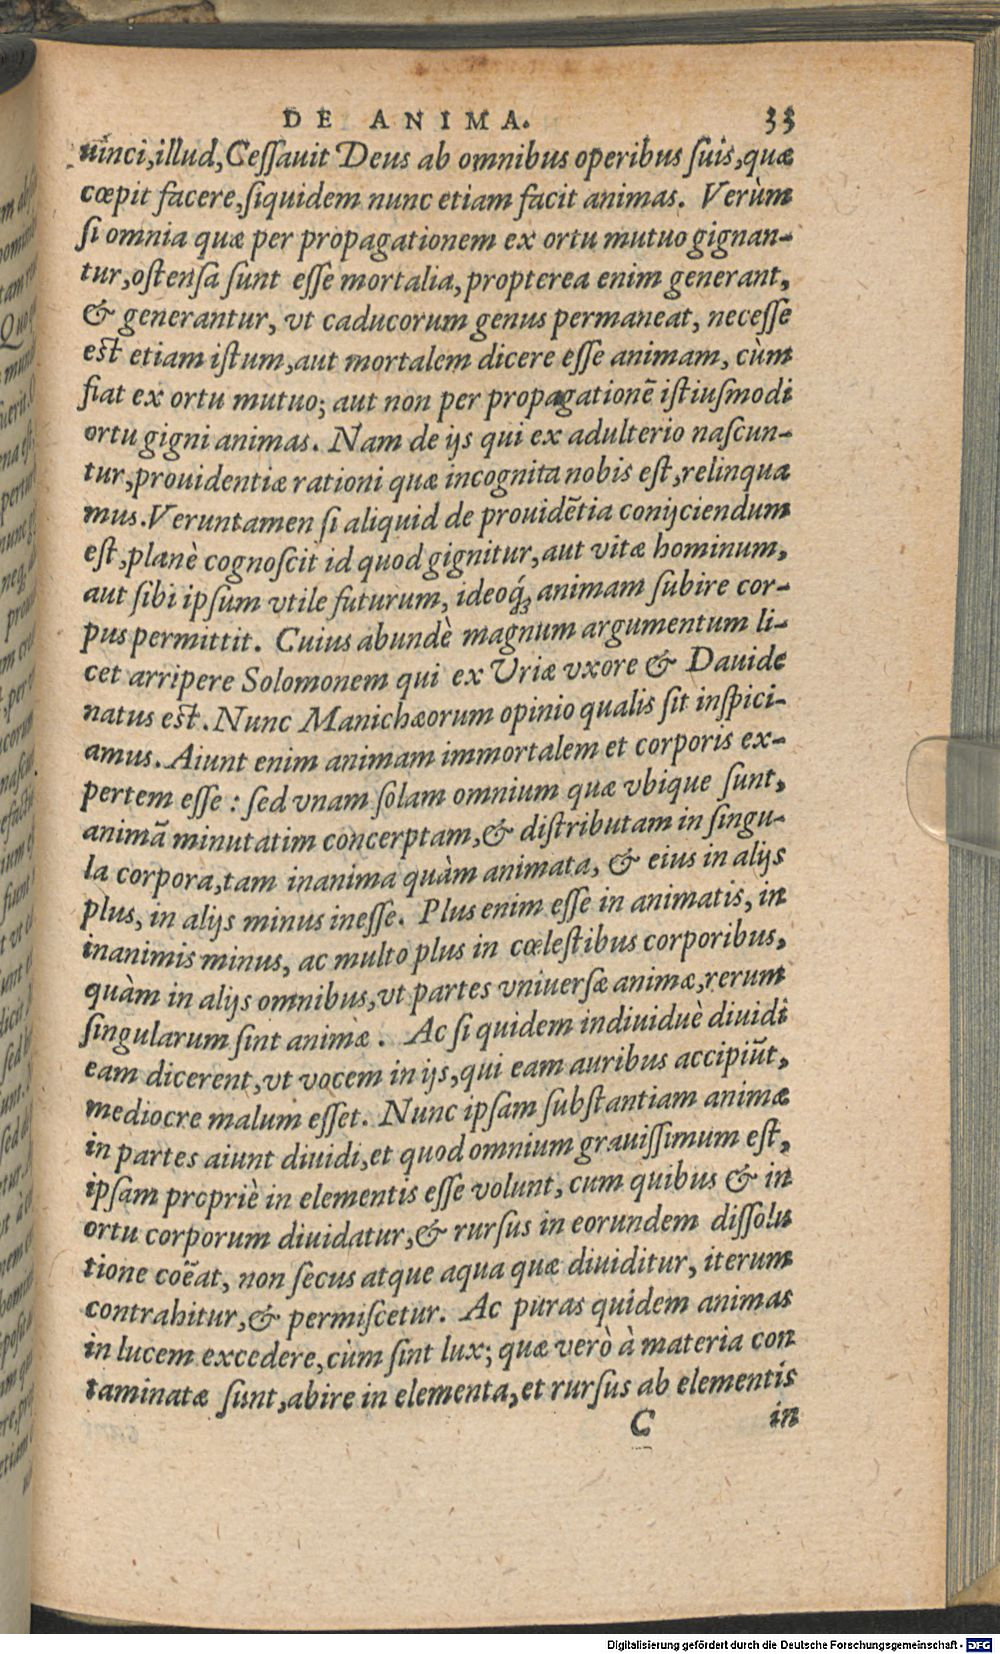 DE ANIMA. 33
uinci,illud,Ceſſauit Deus ab omnibus operibus ſuis,quæ
cœpit facere,ſiquidem nunc etiam facit animas. Verùm
ſi omnia quæ per propagationem ex ortu mutuo gignan-
tur,oſtenſa ſunt eſſe mortalia,propterea enim generant,
& generantur, vt caducorum genus permaneat, neceſſe
eſt etiam iſtum,aut mortalem dicere eſſe animam, cùm
fiat ex ortu mutuo; aut non per propagationē iſtiuſmodi
ortu gigni animas. Nam de ijs qui ex adulterio naſcun-
tur,prouidentiæ rationi quæ incognita nobis eſt,relinqua
mus.Veruntamen ſi aliquid de prouidētia conijciendum
eſt,planè cognoſcit id quod gignitur,aut vitæ hominum,
aut ſibi ipſum vtile futurum, ideoq́; animam ſubire cor-
pus permittit. Cuius abundè magnum argumentum li-
cet arripere Solomonem qui ex Vriæ vxore & Dauide
natus eſt. Nunc Manichæorum opinio qualis ſit inſpici-
amus. Aiunt enim animam immortalem et corporis ex-
pertem eſſe : ſed vnam ſolam omnium quæ vbique ſunt,
animā minutatim concerptam,& diſtributam in ſingu-
la corpora,tam inanima quàm animata, & eius in alijs
plus, in alijs minus ineſſe. Plus enim eſſe in animatis, in
inanimis minus, ac multo plus in cœleſtibus corporibus,
quàm in alijs omnibus,vt partes vniuerſæ animæ,rerum
ſingularum ſint animæ. Ac ſi quidem indiuiduè diuidi
eam dicerent,vt vocem in ijs,qui eam auribus accipiūt,
mediocre malum eſſet. Nunc ipſam ſubſtantiam animæ
in partes aiunt diuidi,et quod omnium grauiſſimum eſt,
ipſam propriè in elementis eſſe volunt, cum quibus & in
ortu corporum diuidatur,& rurſus in eorundem diſſolu
tione coēat, non ſecus atque aqua quæ diuiditur, iterum
contrahitur,& permiſcetur. Ac puras quidem animas
in lucem excedere,cùm ſint lux; quæ verò à materia con
taminatæ ſunt,abire in elementa,et rurſus ab elementis
C in
Digitalisierung gefördert durch die Deutsche Forschungsgemeinschaft - DFG